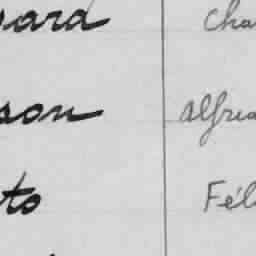 sard Cha
son Alfred
to Féli